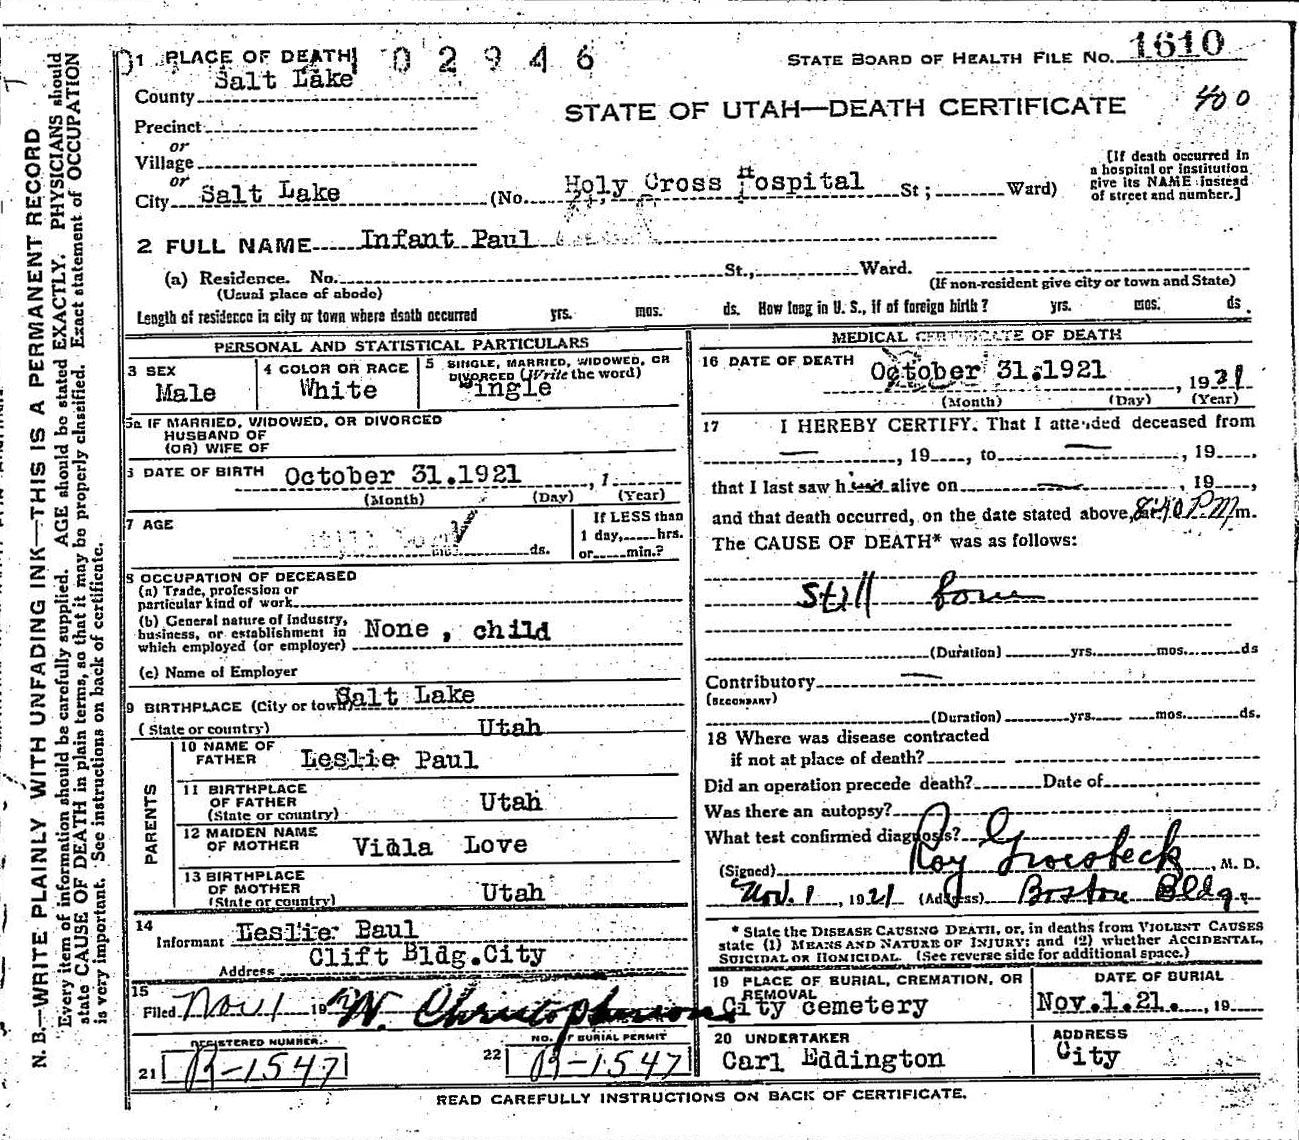 1 PLACE OF DEATH 02946
STATE BOARD OF HEALTH FILE NO. 1610
County Salt Lake
STATE OF UTAH—DEATH CERTIFICATE 400
Precinct
or
Village
or
City Salt Lake (No. Holy Cross Hospital St; Ward)
[If death occurred in
a hospital or institution
give its NAME instead
of street and number.]
2 FULL NAME Infant Paul
(a) Residence. No. St., Ward.
(Usual place of abode) (If non-resident give city or town and State)
Length of residence in city or town where death occurred yrs. mos. ds. How long in U. S., if of foreign birth? yrs. mos. ds.
PERSONAL AND STATISTICAL PARTICULARS
3 SEX
Male
4 COLOR OR RACE
White
5 SINGLE, MARRIED, WIDOWED, OR
DIVORCED (Write the word)
ingle
5a IF MARRIED, WIDOWED, OR DIVORCED
HUSBAND OF
(OR) WIFE OF
6 DATE OF BIRTH October 31.1921, 1
(Month) (Day) (Year)
7 AGE
mos. ds.
If LESS than
1 day, hrs.
or min.?
8 OCCUPATION OF DECEASED
(a) Trade, profession or
particular kind of work
(b) General nature of Industry,
business, or establishment in
which employed (or employer)
None, child
(c) Name of Employer
9 BIRTHPLACE (City or town) Salt Lake
(State or country) Utah
PARENTS
10 NAME OF
FATHER
Leslie Paul
11 BIRTHPLACE
OF FATHER
(State or country)
Utah
12 MAIDEN NAME
OF MOTHER
Viola Love
13 BIRTHPLACE
OF MOTHER
(State or country)
Utah
14
Informant Leslie Paul
Address Clift Bldg.City
15
Filed Nov 1 19 W. Christopherson
REGISTERED NUMBER.
21 R-1547
NO. OF BURIAL PERMIT
22 R-1547
MEDICAL CERTIFICATE OF DEATH
16 DATE OF DEATH October 31.1921, 1921
(Month) (Day) (Year)
17 I HEREBY CERTIFY. That I attended deceased from
— , 19 , to — , 19 ,
that I last saw him alive on — , 19 ,
and that death occurred, on the date stated above, at 8:40 PM m.
The CAUSE OF DEATH* was as follows:
Still born
(Duration) yrs. mos. ds
Contributory —
(SECONDARY)
(Duration) yrs. mos. ds.
18 Where was disease contracted
if not at place of death?
Did an operation precede death? Date of
Was there an autopsy?
What test confirmed diagnosis?
(Signed) Roy Groesbeck, M. D.
Nov. 1, 1921 (Address) Boston Bldg.
* State the DISEASE CAUSING DEATH, or, in deaths from VIOLENT CAUSES
state (1) MEANS AND NATURE OF INJURY; and (2) whether ACCIDENTAL,
SUICIDAL OR HOMICIDAL. (See reverse side for additional space.)
19 PLACE OF BURIAL, CREMATION, OR
REMOVAL
City cemetery
DATE OF BURIAL
Nov.1.21., 19
20 UNDERTAKER
Carl Eddington
ADDRESS
City
READ CAREFULLY INSTRUCTIONS ON BACK OF CERTIFICATE.
N. B.—WRITE PLAINLY WITH UNFADING INK—THIS IS A PERMANENT RECORD
Every item of information should be carefully supplied. AGE should be stated EXACTLY. PHYSICIANS should
state CAUSE OF DEATH in plain terms, so that it may be properly classified. Exact statement of OCCUPATION
is very important. See instructions on back of certificate.